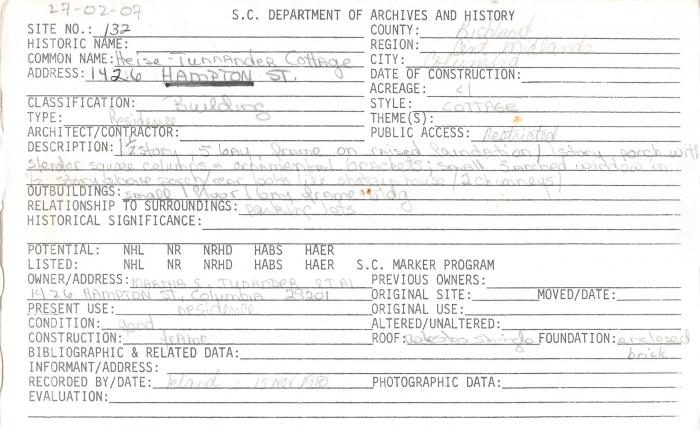 27-02-07
S.C. DEPARTMENT OF ARCHIVES AND HISTORY
SITE NO.: 132 COUNTY: Richland
HISTORIC NAME: REGION: Cent Midlands
COMMON NAME: Heise-Tunander Cottage CITY: Columbia
ADDRESS: 1426 HAMPTON ST. DATE OF CONSTRUCTION:
ACREAGE: <1
CLASSIFICATION: Building STYLE: COTTAGE
TYPE: Residence THEME(S):
ARCHITECT/CONTRACTOR: PUBLIC ACCESS: Restricted
DESCRIPTION: 1½ story, 5 bay, frame on raised foundation/1 story porch with
slender square columns & ornamental brackets; small window in
½ story above porch/rear looks like /2 chimneys/
OUTBUILDINGS: small 1 floor 1 bay frame bldg
RELATIONSHIP TO SURROUNDINGS: parking lots
HISTORICAL SIGNIFICANCE:
POTENTIAL: NHL NR NRHD HABS HAER
LISTED: NHL NR NRHD HABS HAER S.C. MARKER PROGRAM
OWNER/ADDRESS: MARTHA S. TUNANDER ET AL PREVIOUS OWNERS:
1426 HAMPTON ST, Columbia 29201 ORIGINAL SITE: MOVED/DATE:
PRESENT USE: residence ORIGINAL USE:
CONDITION: good ALTERED/UNALTERED:
CONSTRUCTION: frame ROOF: Asbestos shingle FOUNDATION: enclosed
brick
BIBLIOGRAPHIC & RELATED DATA:
INFORMANT/ADDRESS:
RECORDED BY/DATE: Leland - 15 Nov 1980 PHOTOGRAPHIC DATA:
EVALUATION: